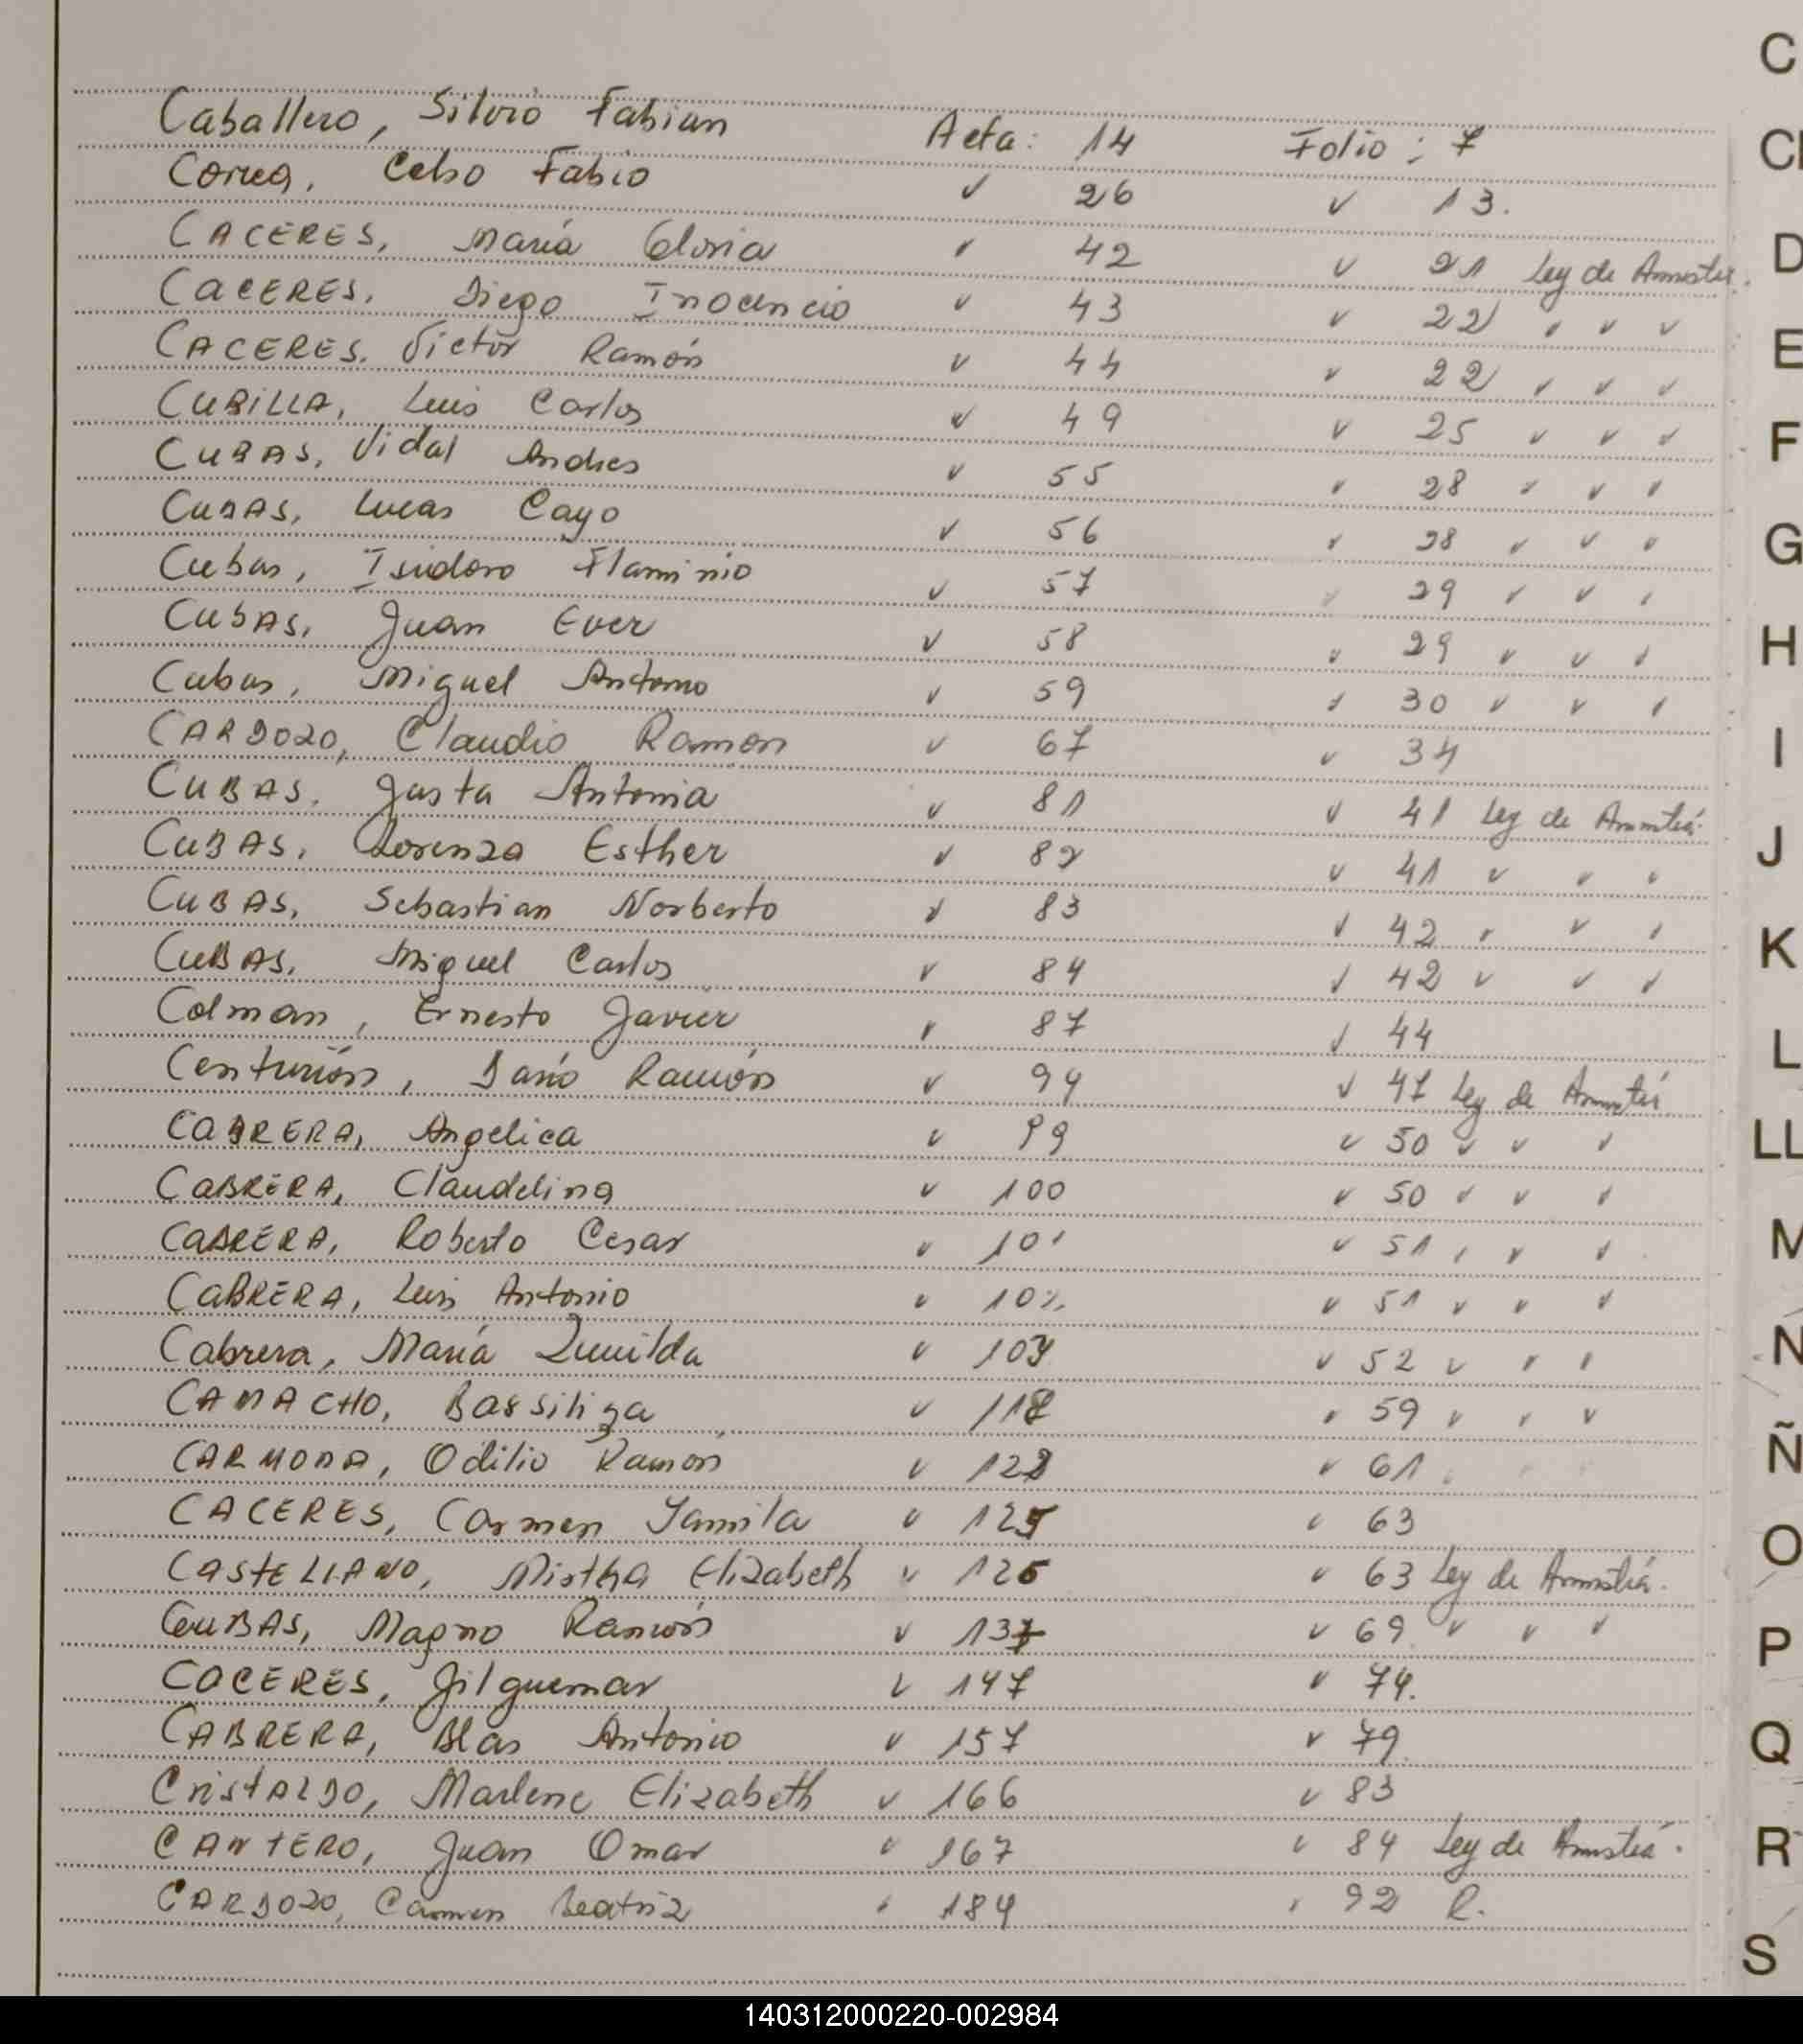 Caballero, Silvio Fabian Acta: 14 Folio: 7
Correa, Celso Fabio ✓ 26 ✓ 13.
CACERES, María Gloria ✓ 42 ✓ 21 Ley de Amnistía.
CACERES, Diego Inocencio ✓ 43 ✓ 22 ✓ ✓ ✓
CACERES. Victor Ramón ✓ 44 ✓ 22 ✓ ✓ ✓
CUBILLA, Luis Carlos ✓ 49 ✓ 25 ✓ ✓ ✓
CUBAS, Vidal Andres ✓ 55 ✓ 28 ✓ ✓ ✓
CUBAS, Lucas Cayo ✓ 56 ✓ 28 ✓ ✓ ✓
Cubas, Isidoro Flaminio ✓ 57 ✓ 29 ✓ ✓ ✓
CUBAS, Juan Ever ✓ 58 ✓ 29 ✓ ✓ ✓
Cubas, Miguel Antonio ✓ 59 ✓ 30 ✓ ✓ ✓
CARDOZO, Claudio Ramon ✓ 67 ✓ 34
CUBAS, Justa Antonia ✓ 81 ✓ 41 Ley de Amnistía.
CUBAS, Lorenza Esther ✓ 82 ✓ 41 ✓ ✓ ✓
CUBAS, Sebastian Norberto ✓ 83 ✓ 42 ✓ ✓ ✓
CUBAS, Miguel Carlos ✓ 84 ✓ 42 ✓ ✓ ✓
Colman, Ernesto Javier ✓ 87 ✓ 44
Centurión, Darío Ramón ✓ 94 ✓ 47 Ley de Amnistía
CABRERA, Angelica ✓ 99 ✓ 50 ✓ ✓ ✓
CABRERA, Claudelina ✓ 100 ✓ 50 ✓ ✓ ✓
CABRERA, Roberto Cesar ✓ 101 ✓ 51 ✓ ✓ ✓
CABRERA, Luis Antonio ✓ 102 ✓ 51 ✓ ✓ ✓
Cabrera, María Zunilda ✓ 103 ✓ 52 ✓ ✓ ✓
CAMACHO, ✓ 118 ✓ 59 ✓ ✓ ✓
CARMONA, Odilio Ramon ✓ 122 ✓ 61
CACERES, Carmen Yamila ✓ 125 ✓ 63
CASTELLANO, Mirtha Elizabeth ✓ 126 ✓ 63 Ley de Amnistía.
CUBAS, Magno Ramón ✓ 137 ✓ 69 ✓ ✓ ✓
CACERES, Gilguemar ✓ 147 ✓ 74.
CABRERA, Blas Antonio ✓ 157 ✓ 79.
CRISTALDO, Marlene Elizabeth ✓ 166 ✓ 83
CANTERO, Juan Omar ✓ 167 ✓ 84 Ley de Amnistía.
CARDOZO, Carmen Beatriz ✓ 184 ✓ 92 R.
C
D
E
F
G
H
I
J
K
L
LL
M
N
Ñ
O
P
Q
R
S
140312000220-002984